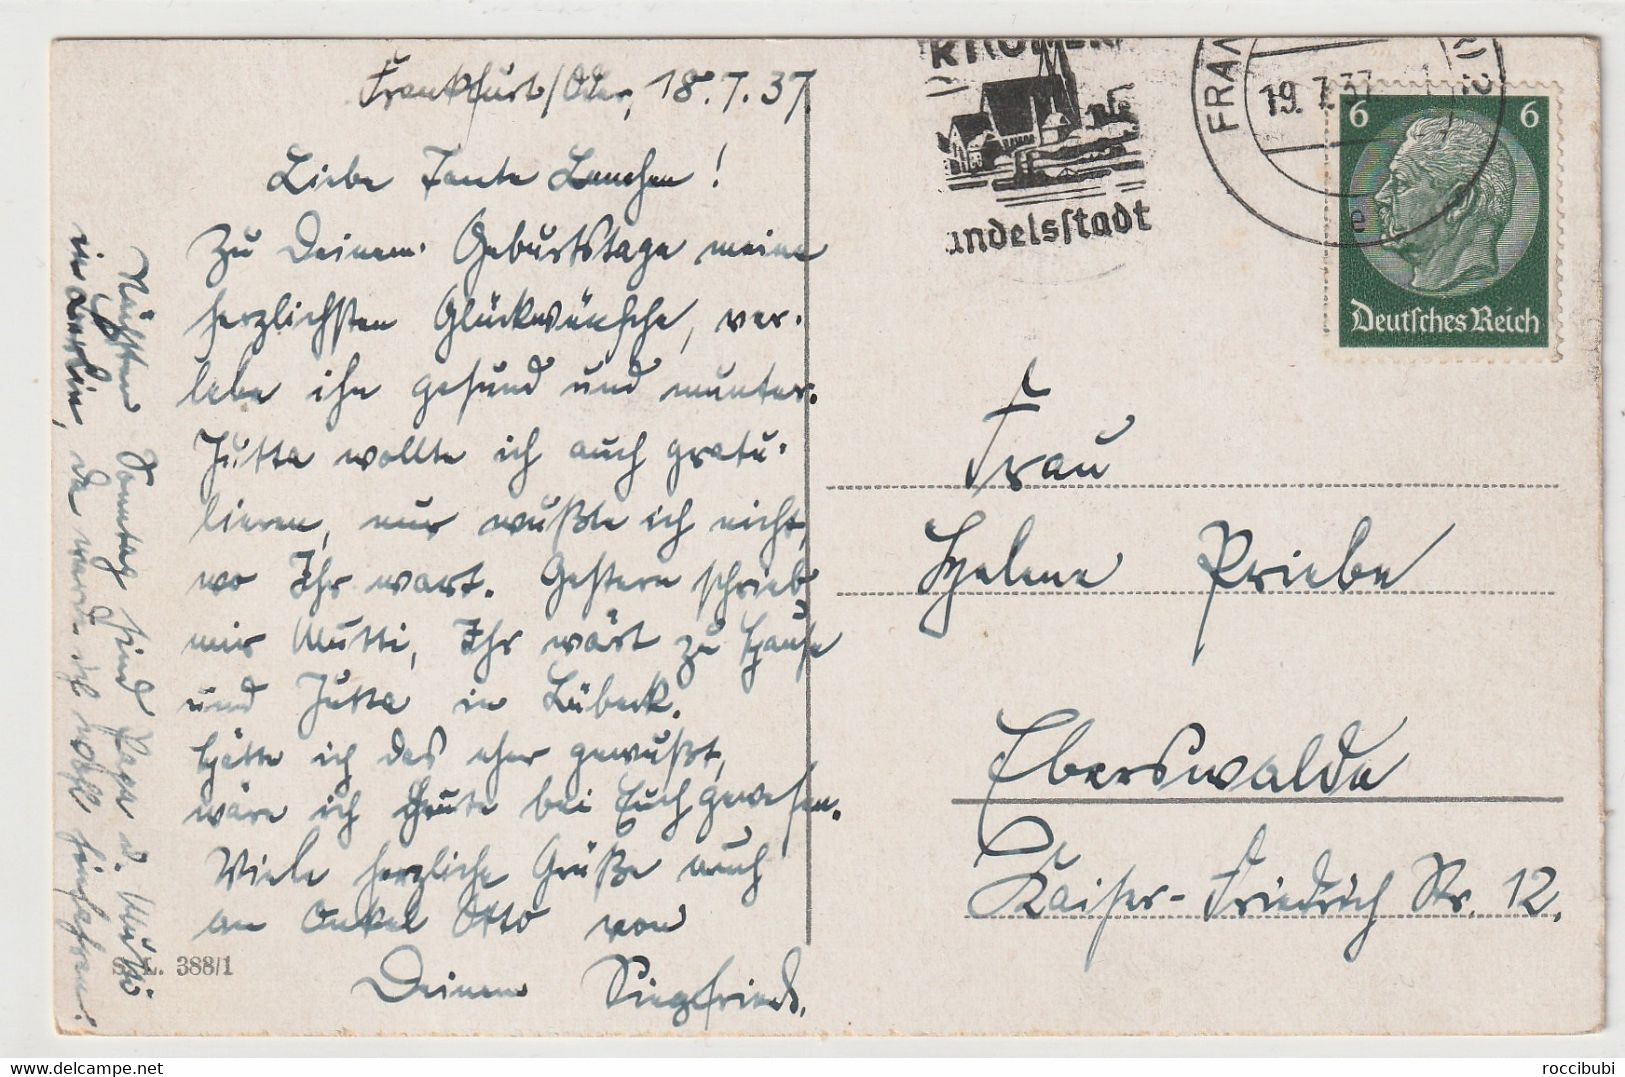 Frankfurt/Oder, 18.7.37
Liebe Tante Lenchen!
Zu Deinem Geburtstage meine
herzlichsten Glückwünsche, ver-
lebe ihn gesund und munter.
Jutta wollte ich auch gratu-
lieren, nur wußte ich nicht,
wo Ihr wart. Gestern schrieb
mir Mutti, Ihr wärt zu Hause
und Jutta in Lübeck.
Hätte ich das eher gewußt,
wäre ich heute bei Euch gewesen.
Viele herzliche Grüße auch
an Onkel Otto von
Deinem Siegfried.
Nächsten Sonntag sind Papa u. Mutti
in Berlin, da werde ich wohl hinfahren.
S. L. 388/1
andelsstadt
FRAN
19.7.37
e
6 6
Deutsches Reich
Frau
Helene Priebe
Eberswalde
Kaiser-Friedrich Str. 12.
roccibubi